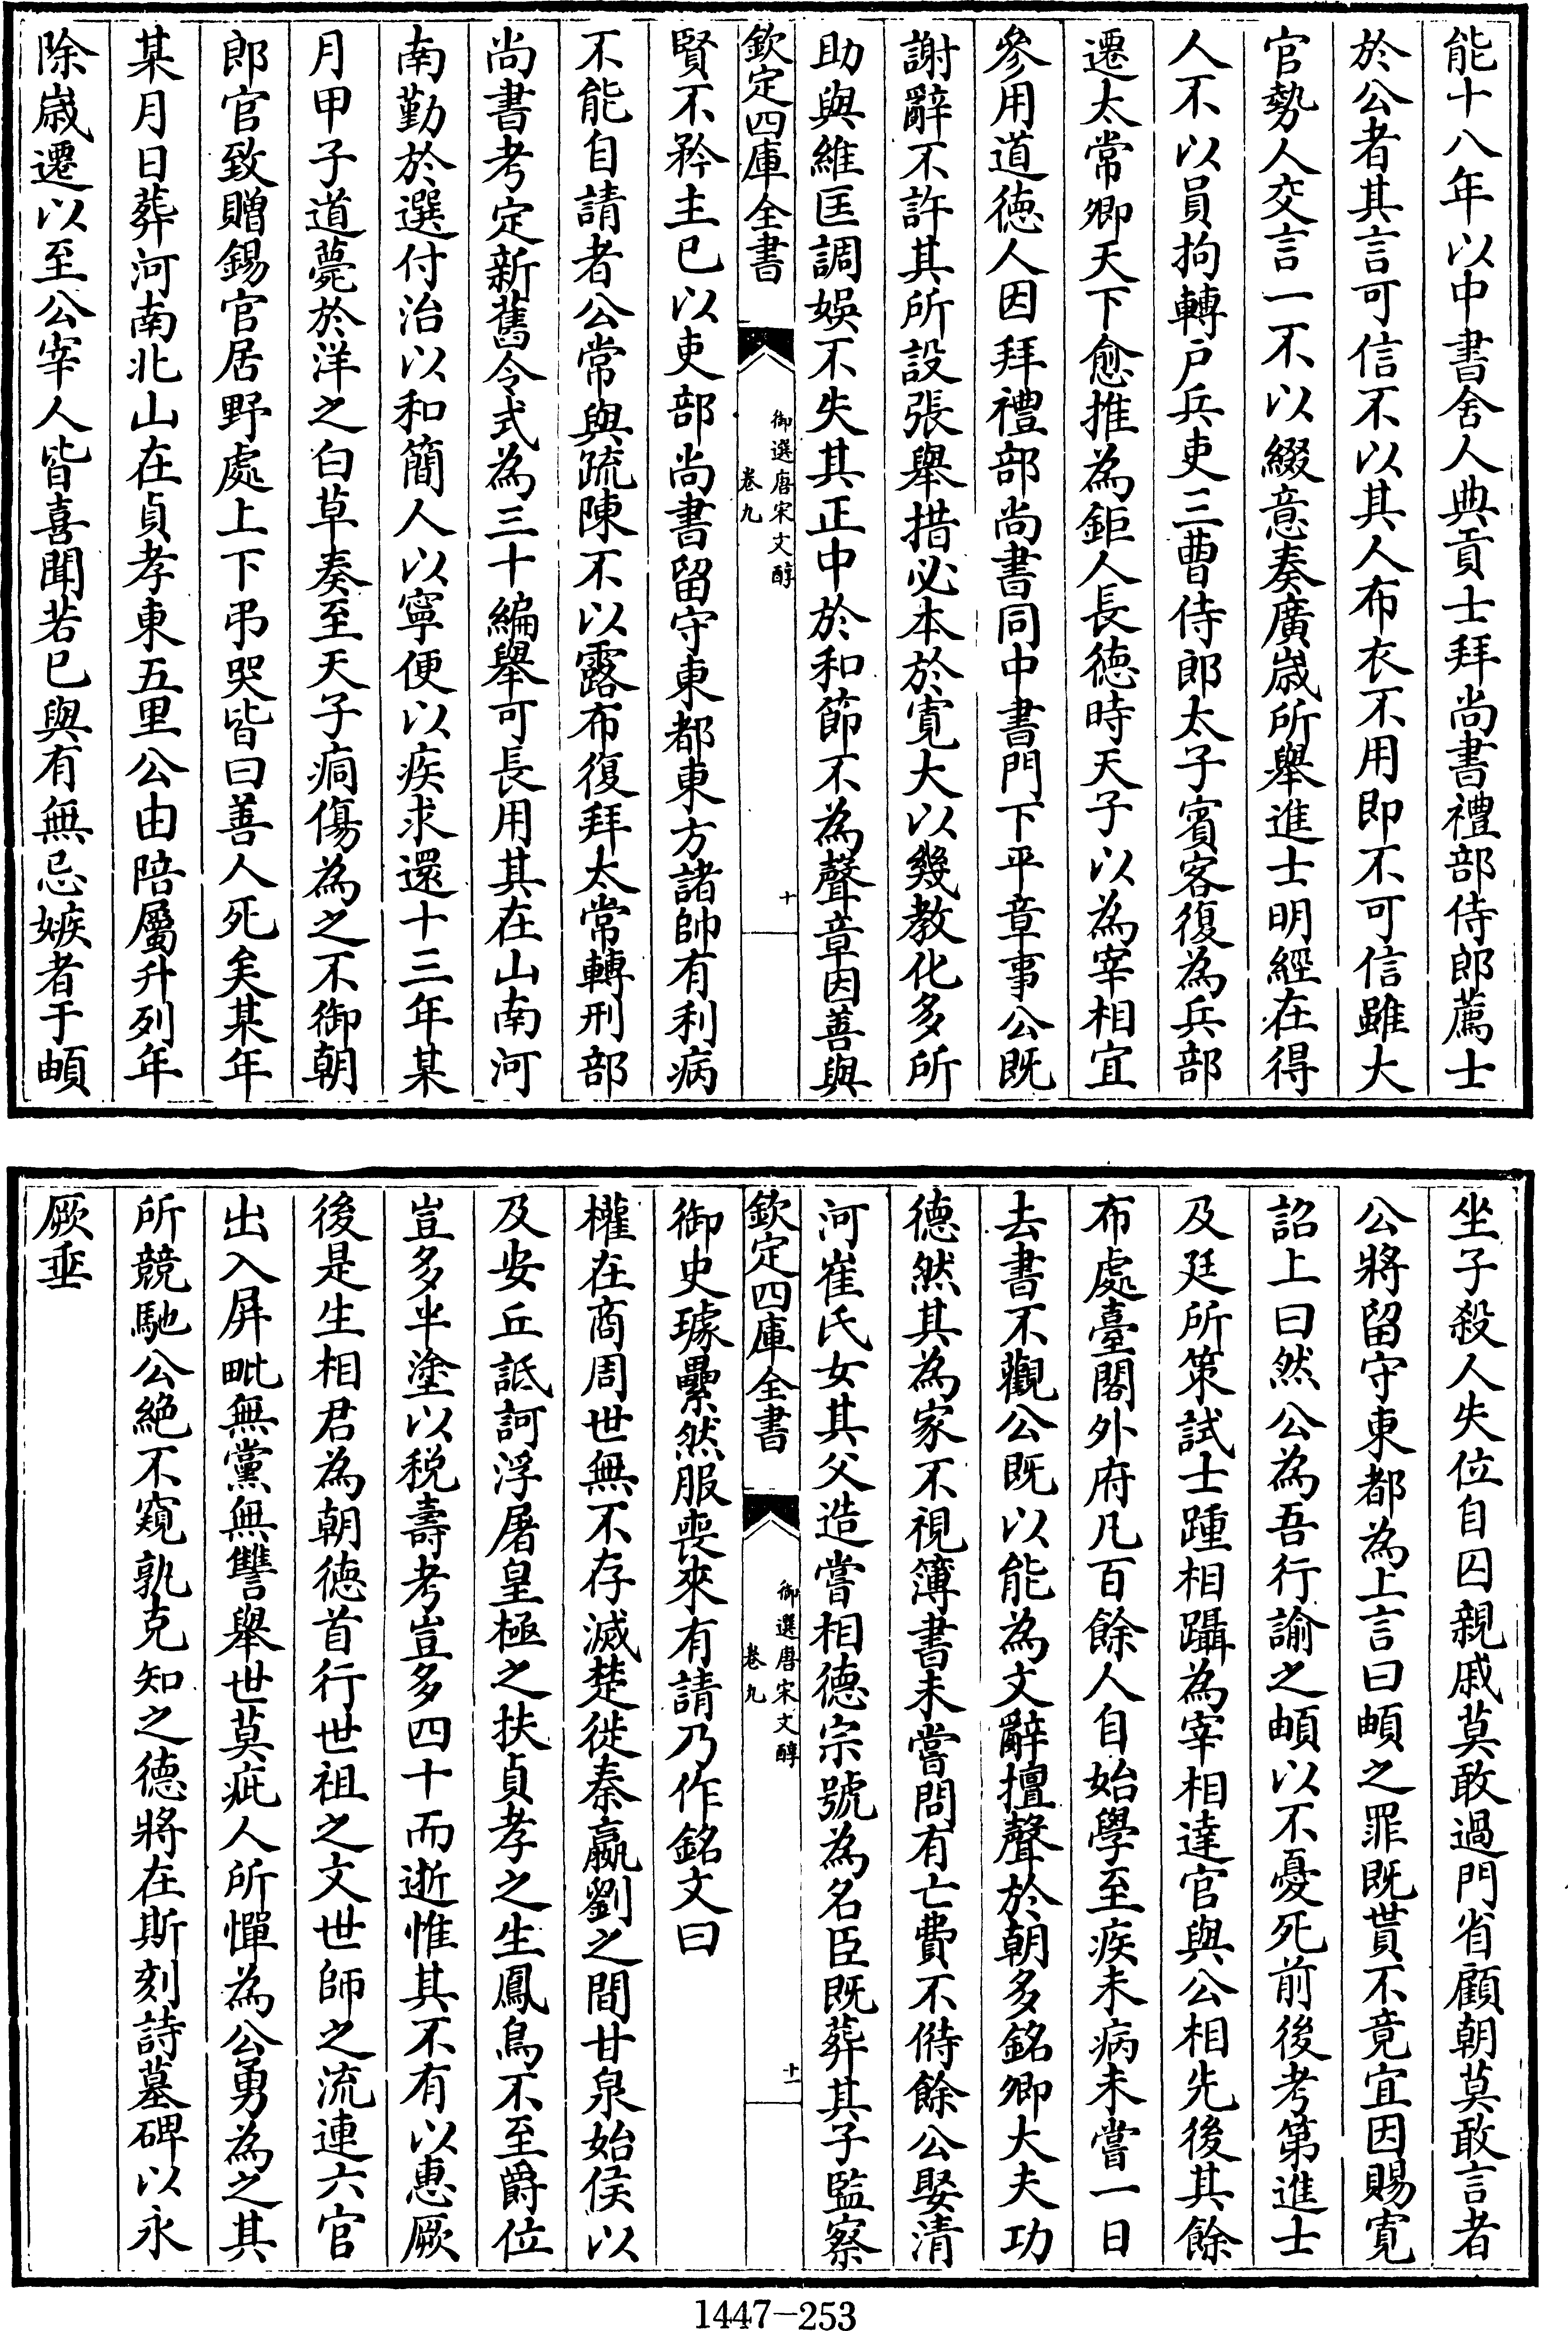 能十八年以中書舍人典貢士拜尚書禮部侍郎薦士
於公者其言可信不以其人布衣不用即不可信雖大
官勢人交言一不以綴意奏廣嵗所舉進士明經在得
人不以員拘轉户兵吏三曹侍郎太子賓客復為兵部
遷太常卿天下愈推為鉅人長徳時天子以為宰相宜
參用道徳人因拜禮部尚書同中書門下平章事公既
謝辭不許其所設張舉措必本於寛大以幾教化多所
助與維匡調娛不失其正中於和節不為聲章因善與
欽定四庫全書
御選唐宋文醇
卷九
十
賢不矜主已以吏部尚書留守東都東方諸帥有利病
不能自請者公常與疏陳不以露布復拜太常轉刑部
尚書考定新舊令式為三十編舉可長用其在山南河
南勤於選付治以和簡人以寧便以疾求還十三年某
月甲子道薨於洋之白草奏至天子痌傷為之不御朝
郎官致贈錫官居野處上下弔哭皆曰善人死矣某年
某月日葬河南北山在貞孝東五里公由陪屬升列年
除嵗遷以至公宰人皆喜聞若已與有無忌嫉者于頔
坐子殺人失位自囚親戚莫敢過門省顧朝莫敢言者
公將留守東都為上言曰頔之罪既貰不竟宜因賜寛
詔上曰然公為吾行諭之頔以不憂死前後考第進士
及廷所策試士踵相躡為宰相達官與公相先後其餘
布處臺閣外府凡百餘人自始學至疾未病未嘗一日
去書不觀公既以能為文辭擅聲於朝多銘卿大夫功
徳然其為家不視簿書未嘗問有亡費不偫餘公娶清
河崔氏女其父造嘗相徳宗號為名臣既葬其子監察
欽定四庫全書
御選唐宋文醇
卷九
十一
御史璩纍然服喪來有請乃作銘文曰
權在商周世無不存滅楚徙秦嬴劉之間甘泉始侯以
及安丘詆訶浮屠皇極之扶貞孝之生鳳鳥不至爵位
豈多半塗以税壽考豈多四十而逝惟其不有以惠厥
後是生相君為朝徳首行世祖之文世師之流連六官
出入屏毗無黨無讐舉世莫疵人所憚為公勇為之其
所競馳公絶不窺孰克知之德將在斯刻詩墓碑以永
厥垂
1447-253